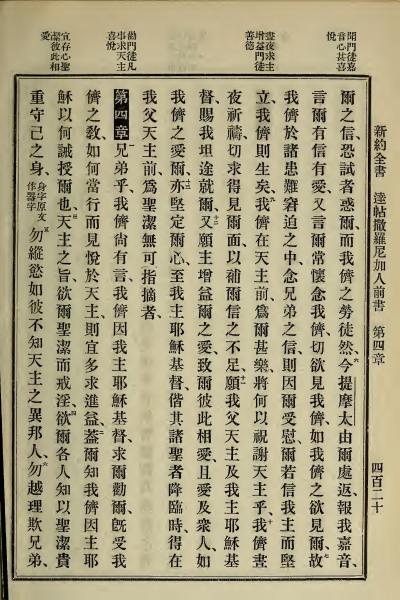 新約全書 達帖撒羅尼加人前書 第四章 四百二十
聞門徒嘉
音心甚喜
悅
晝夜求主
增益門徒
善德
勸門徒凡
事求天主
喜悅
宜存心聖
潔彼此相
愛
爾之信、恐試者惑爾、而我儕之勞徒然、六今提摩太由爾處返、報我嘉音、
言爾有信有愛、又言爾常懷念我儕、切欲見我儕、如我儕之欲見爾、七故
我儕於諸患難窘迫之中、念兄弟之信、則因爾受慰、八爾若信我主而堅
立、我儕則生矣、九我儕在天主前、爲爾甚樂、將何以祝謝天主乎、十我儕晝
夜祈禱、切求得見爾面、以補爾信之不足、十一願我父天主、及我主耶穌基
督、賜我坦途就爾、十二又願主增益爾之愛、致爾彼此相愛、且愛及衆人、如
我儕之愛爾、十三亦堅定爾心、至我主耶穌基督、偕其諸聖者降臨時、得在
我父天主前、爲聖潔無可指摘者、
第四章 一兄弟乎、我儕尙有言、我儕因我主耶穌基督、求爾勸爾、旣受我
儕之敎、如何當行而見悅於天主、則宜多求進益、二蓋爾知我儕因主耶
穌以何誡授爾也、三天主之旨、欲爾聖潔而戒淫、四欲爾各人知以聖潔貴
重守己之身、身字原文作器字五勿縱慾如彼不知天主之異邦人、六勿越理欺兄弟、